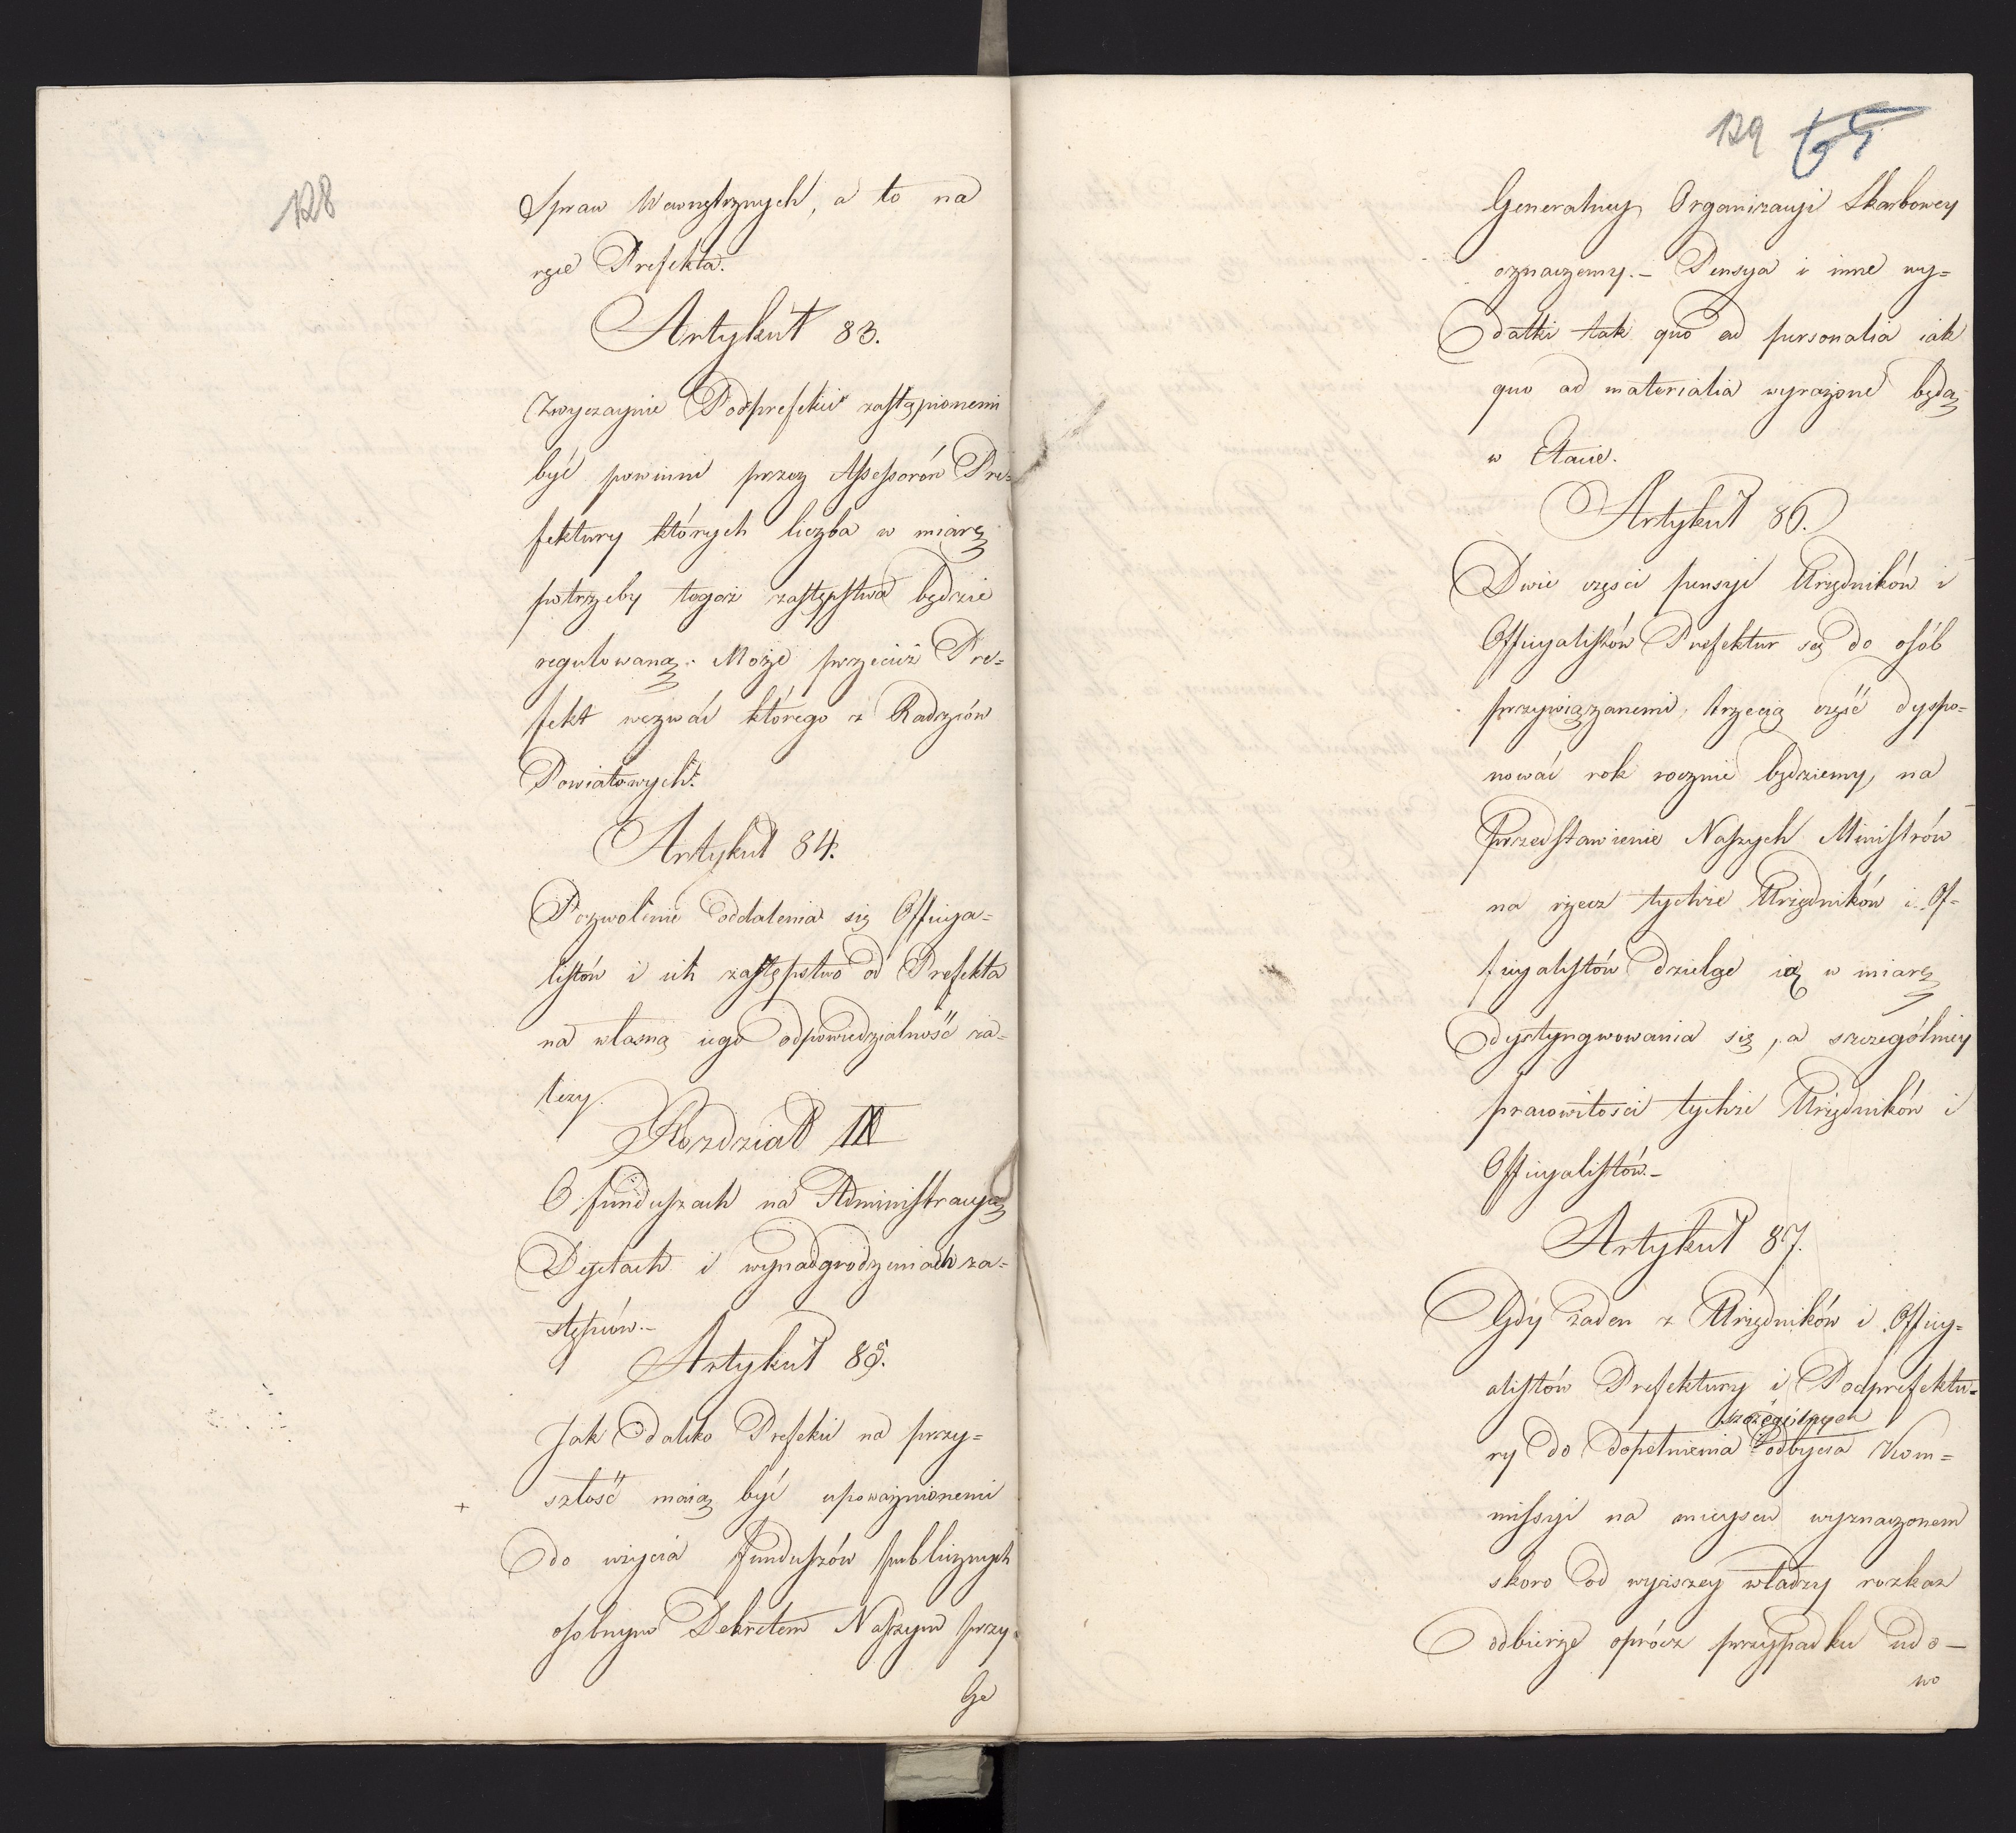 128
Spraw Wewnętrznych, a to na
ręce Prefekta.
Artykuł 83.
Zwyczaynie Podprefekci zastąpionemi
być powinni przez Assessorów Pre=
fektury których liczba w miarę
potrzeby tegoż zastępstwa będzie
regulowaną. Może przecież Pre=
fekt wezwać którego z Radzców
Powiatowych.
Artykuł 84.
Pozwolenie oddalenia się Officya=
listów i ich zastępstwo od Prefekta
na własną iego odpowiedzialność za=
leży.
Rozdział
O funduszach na Administracyą
Dyetach i wynadgrodzeniach za=
stępców.–
Artykuł 85.
Jak daleko Prefekci na przy=
szłość maią być upoważnionemi
+
do użycia funduszów publicznych
osobnym Dekretem Naszym przy
Ge
129 65
Generalney Organizacyi Skarbowey
oznaczemy.– Pensya i inne wy=
datki tak quo ad personalia iak
quo ad materialia wyrażone będą
w Etacie.
Artykuł 86.
Dwie części pensyi Urzędników i
Officyalistów Prefektur są do osób
przywiązanemi, trzecią część dyspo=
nować rok rocznie będziemy, na
Przedstawienie Naszych Ministrów
na rzecz tychże Urzędników i Of=
ficyalistów dzieląc ią w miarę
dystyngwowania się, a szczególniey
pracowitości tychże Urzędników i
Officyalistów.–
Artykuł 87.
Gdy żaden z Urzędników i Officy=
alistów Prefektury i Podprefektu=
szczególnych
ry do dopełnienia i odbycia Kom=
missyi na mieyscu wyznaczonem
skoro od wyższey władzy rozkaz
odbierze oprócz przypadku udo–
wo